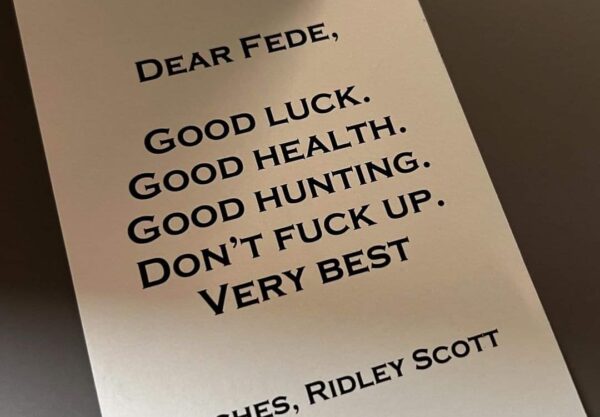 DEAR FEDE,
GOOD LUCK.
GOOD HEALTH.
GOOD HUNTING.
DON'T FUCK UP.
VERY BEST
RIDLEY SCOTT